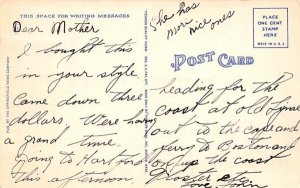 THIS SPACE FOR WRITING MESSAGES
She has
more
nice ones
PLACE
ONE CENT
STAMP
HERE
MADE IN U.S.A.
POST CARD
Dear Mother
I bought this
in your style
came down three
dollars. We're having
a grand time.
going to Hartford
this afternoon.
heading for the
coast at old Lyme
out to the cape and
ferry to Boston and
up the coast
after
Love